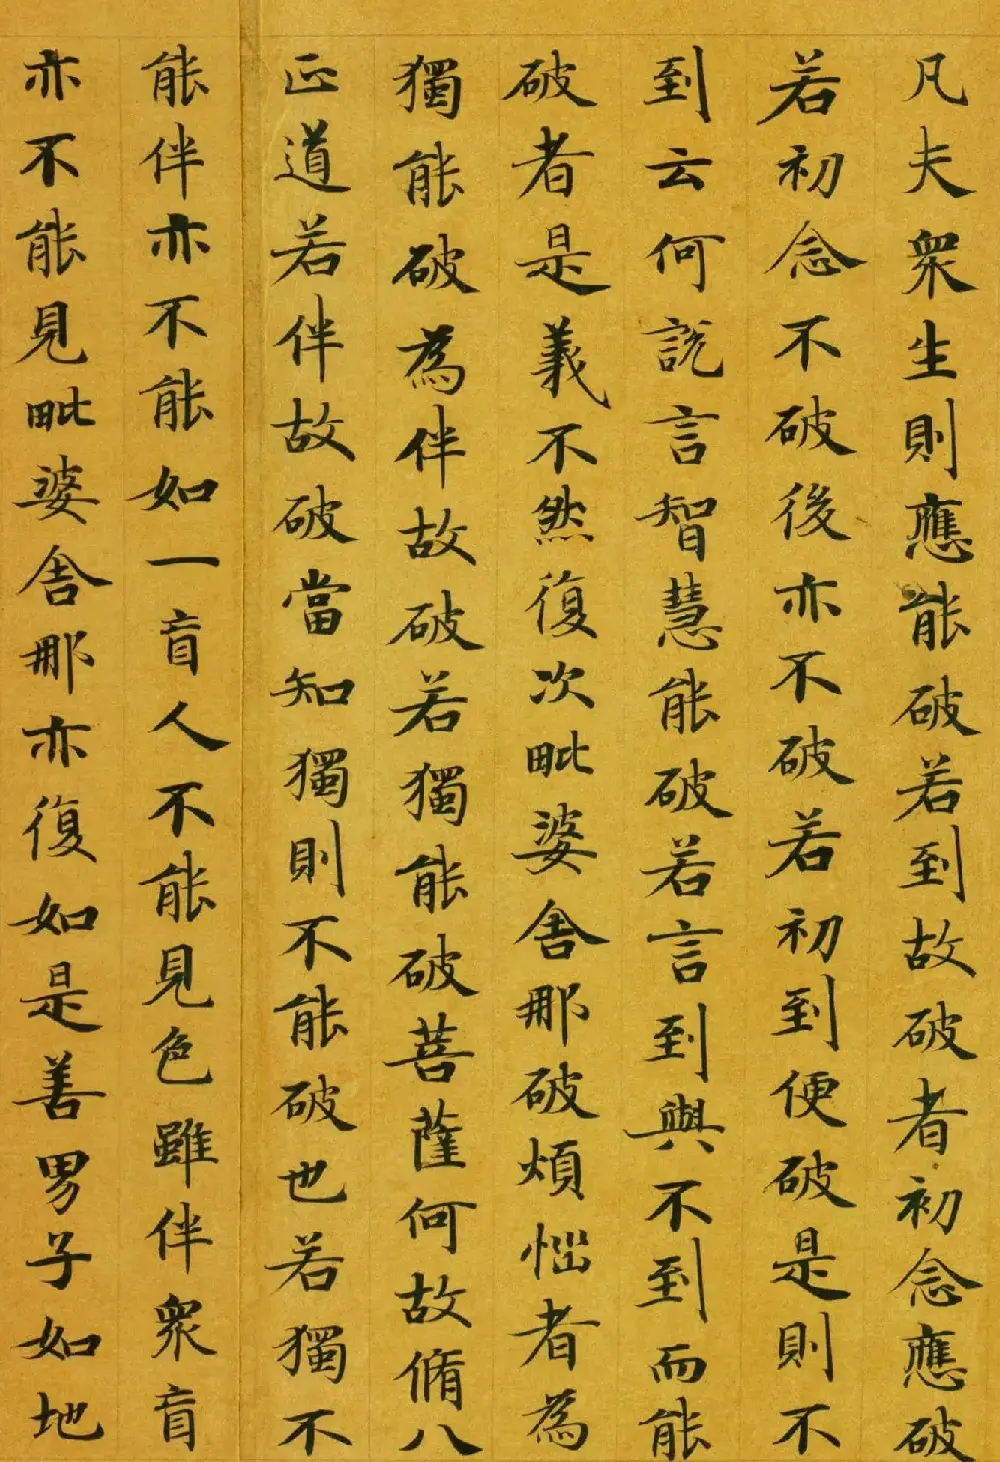 凡夫衆生則應能破若到故破者初念應破
若初念不破後亦不破若初到便破是則不
到云何說言智慧能破若言到與不到而能
破者是義不然復次毗婆舍那破煩惱者為
獨能破為伴故破若獨能破菩薩何故脩八
正道若伴故破當知獨則不能破也若獨不
能伴亦不能如一盲人不能見色雖伴衆盲
亦不能見毗婆舍那亦復如是善男子如地